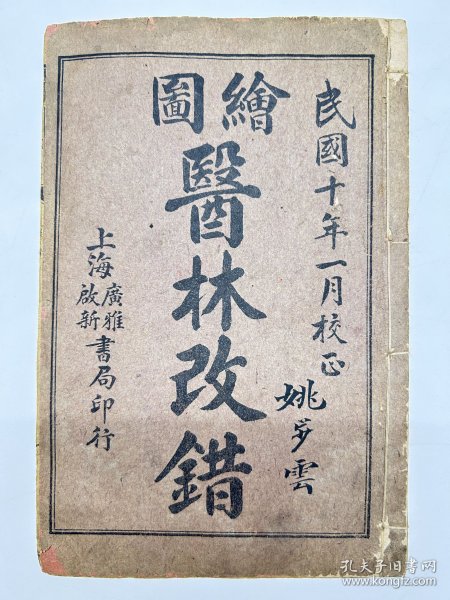 民國十年一月校正
姚步雲
繪圖
醫林改錯
上海廣雅啟新書局印行
孔夫子旧书网
www.kongfz.com